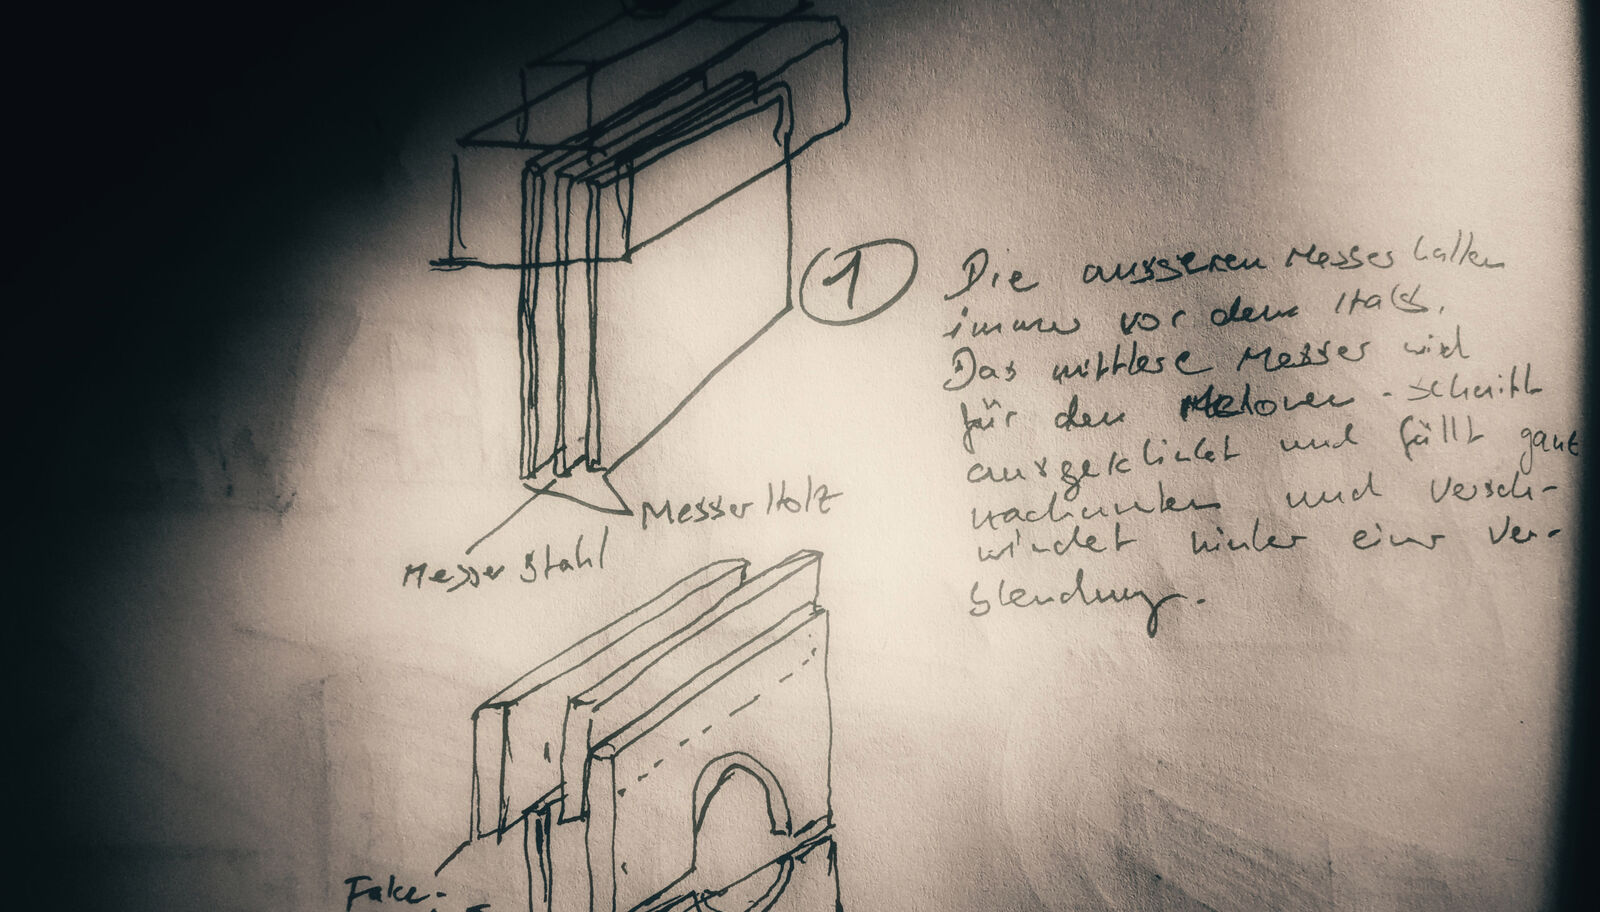 1
Die ausseren Messer halten
immer vor dem Hals.
Das mittlere Messer wird
für den Melonen-schnitt
ausgeklinkt und fällt ganz
nach unten und versch-
windet hinter einer Ver-
blendung.
Messer Holz
Messer Stahl
Fake-